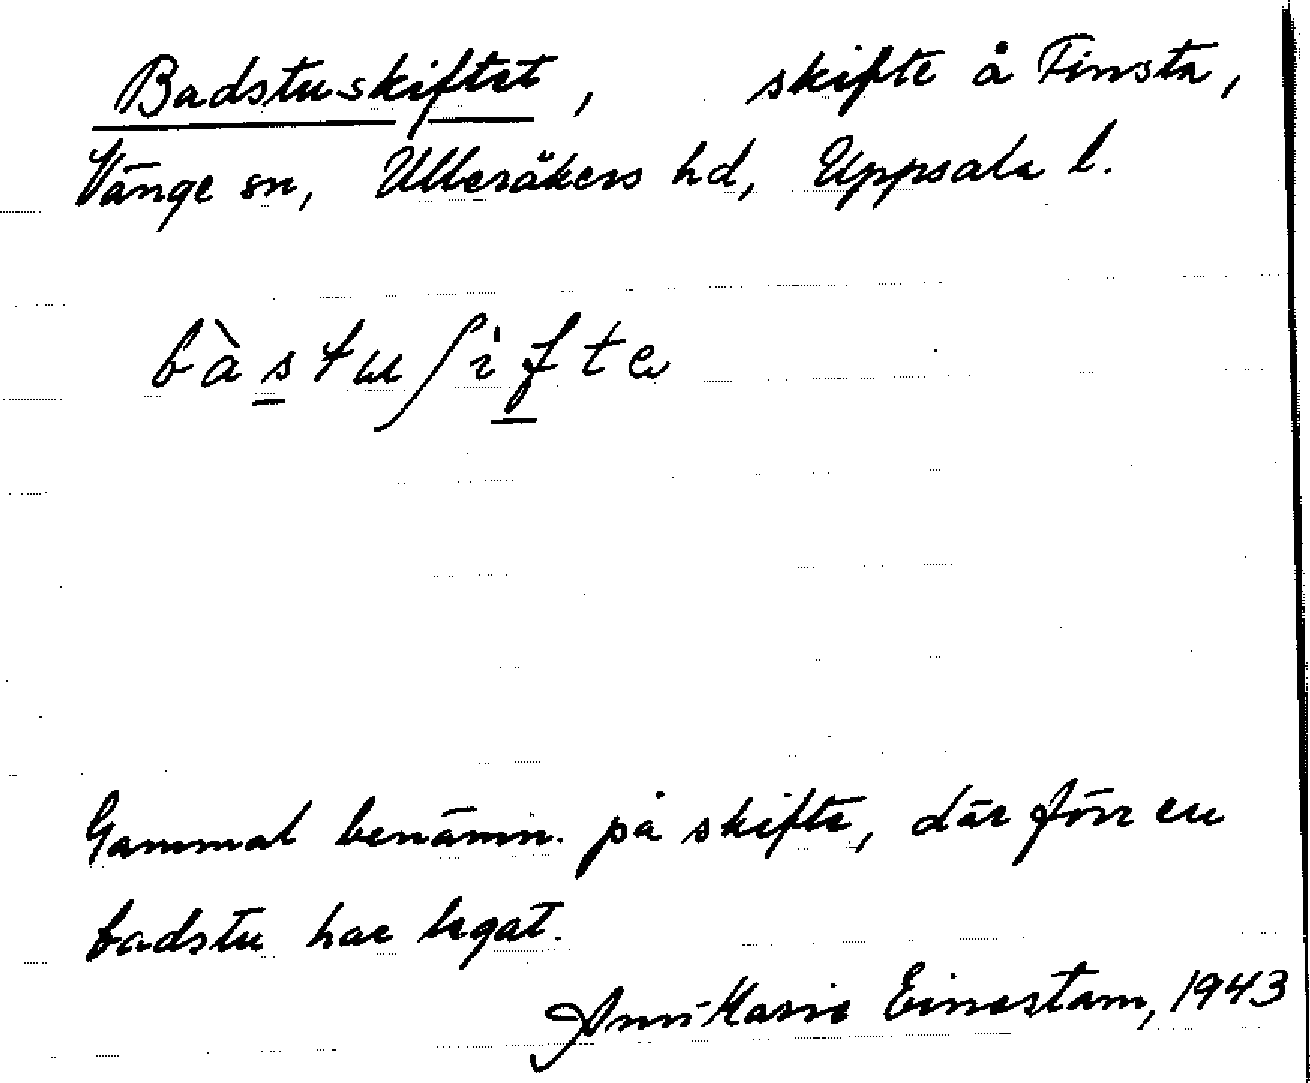 Badstuskiftet, skifte å Finsta,
Vänge sn, Ulleråkers hd, Uppsala l.
bàstuʃifte
Gammal benämn. på skifte, där förr en
badstu har legat.
Ann-Marie Einestam, 1943